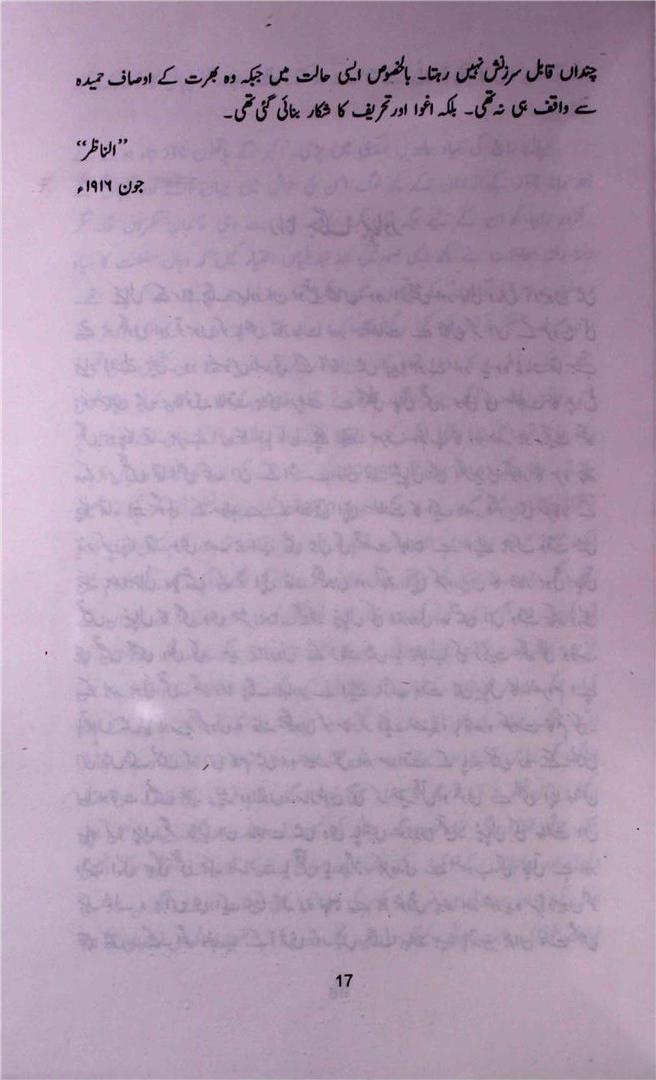 چنداں قابل سرزنش نہیں رہتا۔ بالخصوص ایسی حالت میں جبکہ وہ بھرت کے اوصاف حمیدہ
سے واقف ہی نہ تھی۔ بلکہ اغوا اور تحریف کا شکار بنائی گئی تھی۔
"الناظر"
جون ۱۹۱۶ء
17